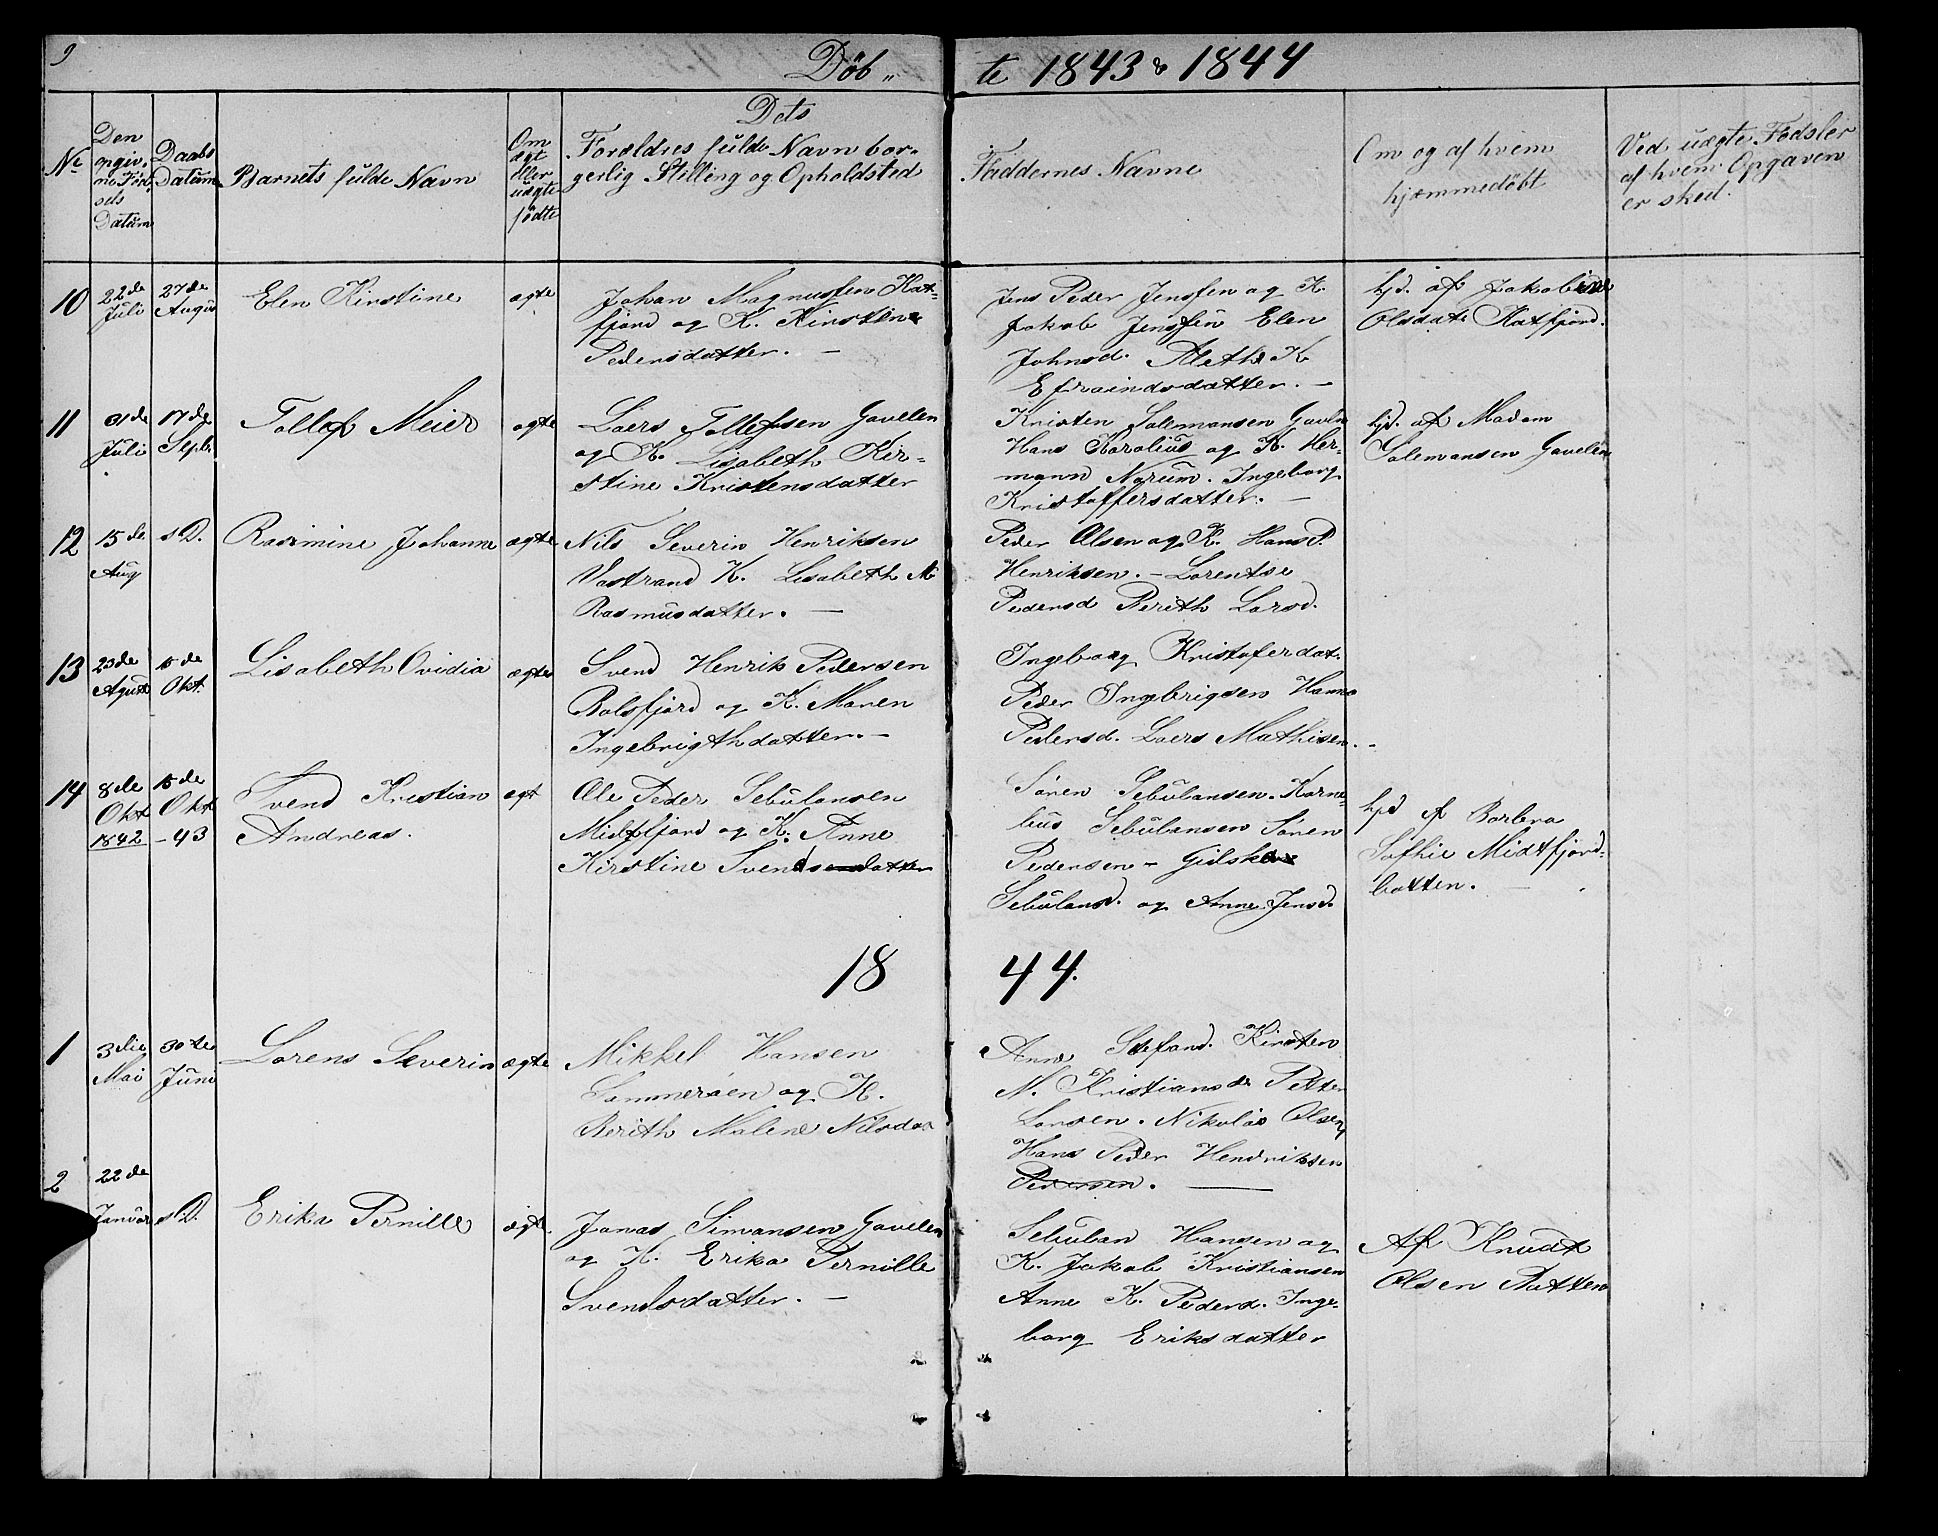 9
Døb„ te 1843 & 1844
Nr
Den opgivne Fødsels Datum
Daabs Datum
Barnets fulde Navn
Om ægt eller uægte fødte
Dets Forældres fulde Navn borgerlig Stilling og Opholdsted
Faddernes Navne
Om og af hvem hjæmmedøbt
Ved uægte Fødsler af hvem Opgaven er sked.
10
22de Juli
27de Augus
Elen Kirstine
ægte
Johan Magnussen Kat-
fjord og K. Kirstene
Pedersdatter. —
Jens Peder Jenssen og K.
Jakob Jenssen Elen
Johnsd. Alethe K
Efraindsdatter. —
hjd. af Jakobine
Olsdatr Katfjord.
11
31de Juli
17de Septr.
Tollef Meier
ægte
Laers Tollefsen Gavelen
og K. Lisabeth Kir-
stine Kristensdatter
Kristen Salemansen Gavln
Hans Karolius og K. Her-
mann Norum. Ingeborg
Kristoffersdatter. —
hjd. af Madam
Salemansen Gavelen
12
15de Aug
s D.
Rasmine Johanne
ægte
Nils Severin Henriksen
Vastrand K. Lisabeth M
Rasmusdatter. —
Peder Olsen og K. Hans P.
Henriksen. — Lorentse
Pedersd Berith Larsd.
13
23de Agust
15de Okt.
Lisabeth Ovidia
ægte
Svend Henrik Pedersen
Balsfjord og K. Maren
Ingebrigthdatter. —
Ingeborg Kristoferdat.
Peder Ingebrigsen Hanna
Pedersd. Laers Mathisen. -
14
8de Okt 1842
15de Okt -43
Svend Kristian
Andreas.
egt
Ole Peder Sebulansen
Midtfjord og K. Anne
Kirstine Svendsendatter
Søren Sebulansen. Korne-
lius Sebulansen Søren
Pedersen — Gilske
Sebulansd. og Anne Jensd.
hjd af Barbra
Sofhie Midtfjord-
botten. —
18 44.
1
3die Mai
30te Juni
Lorens Severin
ægte
Mikkel Hansen
Sommerøen og K.
Berith Malene Nilsda
Anne Stefand. Kirsten
M. Kristiansdr Petter
Larsen. Nikolai Olsen
Hans Peder Hendriksen
Pedersen. —
2
22de Januar
s D.
Erika Pernille
ægte
Jonas Simonsen Gavelen
og K. Erika Pernille
Svendsdatter. —
Sebulan Hansen og
K. Jakob Kristiansen
Anne K. Pedersd. Inge-
borg Eriksdatter
Af Knudt
Olsen Batten